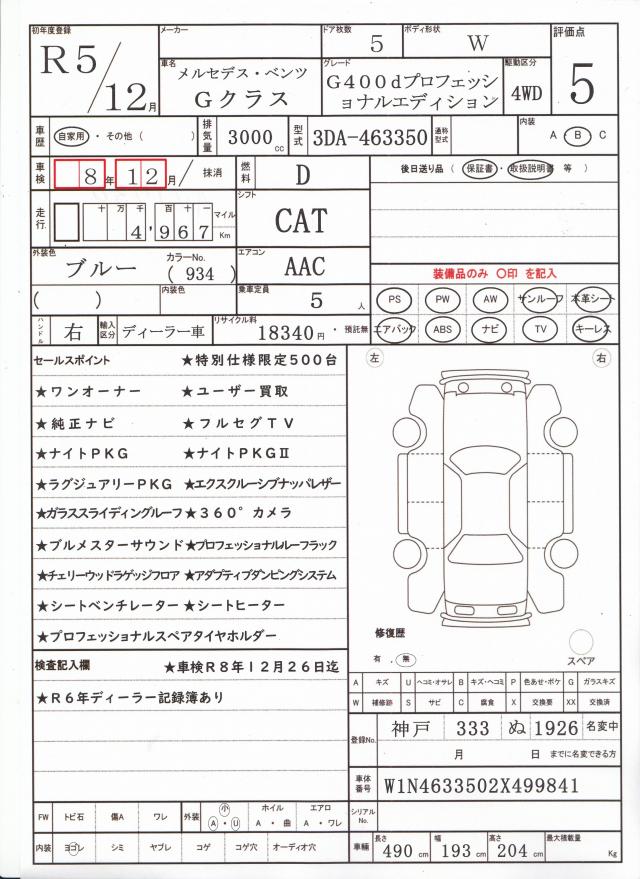 初年度登録 メーカー ドア枚数 ボディ形状 評価点
R5/12月 5 W 5
車名 グレード 駆動区分
メルセデス・ベンツ G400dプロフェッシ 4WD
Gクラス ョナルエディション
車歴 自家用・その他( ) 排気量 3000cc 型式 3DA-463350 通称型式 内装 A・B・C
車検 8年12月/ 抹消 燃料 D 後日送り品(保証書・取扱説明書 等)
走行 十 万 千 百 十 一 マイル シフト
4,967 Km CAT
外装色 カラーNo. エアコン 装備品のみ 〇印 を記入
ブルー (934) AAC PS PW AW サンルーフ 本革シート
( ) 内装色 乗車定員 5人 エアバック ABS ナビ TV キーレス
ハンドル 右 輸入区分 ディーラー車 リサイクル料 18340円・預託無
セールスポイント ★特別仕様限定500台
★ワンオーナー ★ユーザー買取
★純正ナビ ★フルセグTV
★ナイトPKG ★ナイトPKGⅡ
★ラグジュアリーPKG ★エクスクルーシブナッパレザー
★ガラススライディングルーフ★360°カメラ
★ブルメスターサウンド★プロフェッショナルルーフラック
★チェリーウッドラゲッジフロア★アダプティブダンピングシステム
★シートベンチレーター★シートヒーター
★プロフェッショナルスペアタイヤホルダー
検査記入欄 ★車検R8年12月26日迄
★R6年ディーラー記録簿あり
左 右
修復歴
有・無 スペア
A キズ U ヘコミ・オサレ B キズ・ヘコミ P 色あせ・ボケ G ガラスキズ
W 補修跡 S サビ C 腐食 X 交換要 XX 交換済
登録No. 神戸 333 ぬ 1926 名変中
月 日 までに名変できる方
車体番号 W1N4633502X499841
シリアルNo.
FW トビ石 傷A ワレ 外装 小 A・U ホイル A・曲 エアロ A・ワレ
内装 ヨゴレ シミ ヤブレ コゲ コゲ穴 オーディオ穴
車輛 長さ 490cm 幅 193cm 高さ 204cm 最大積載量 Kg